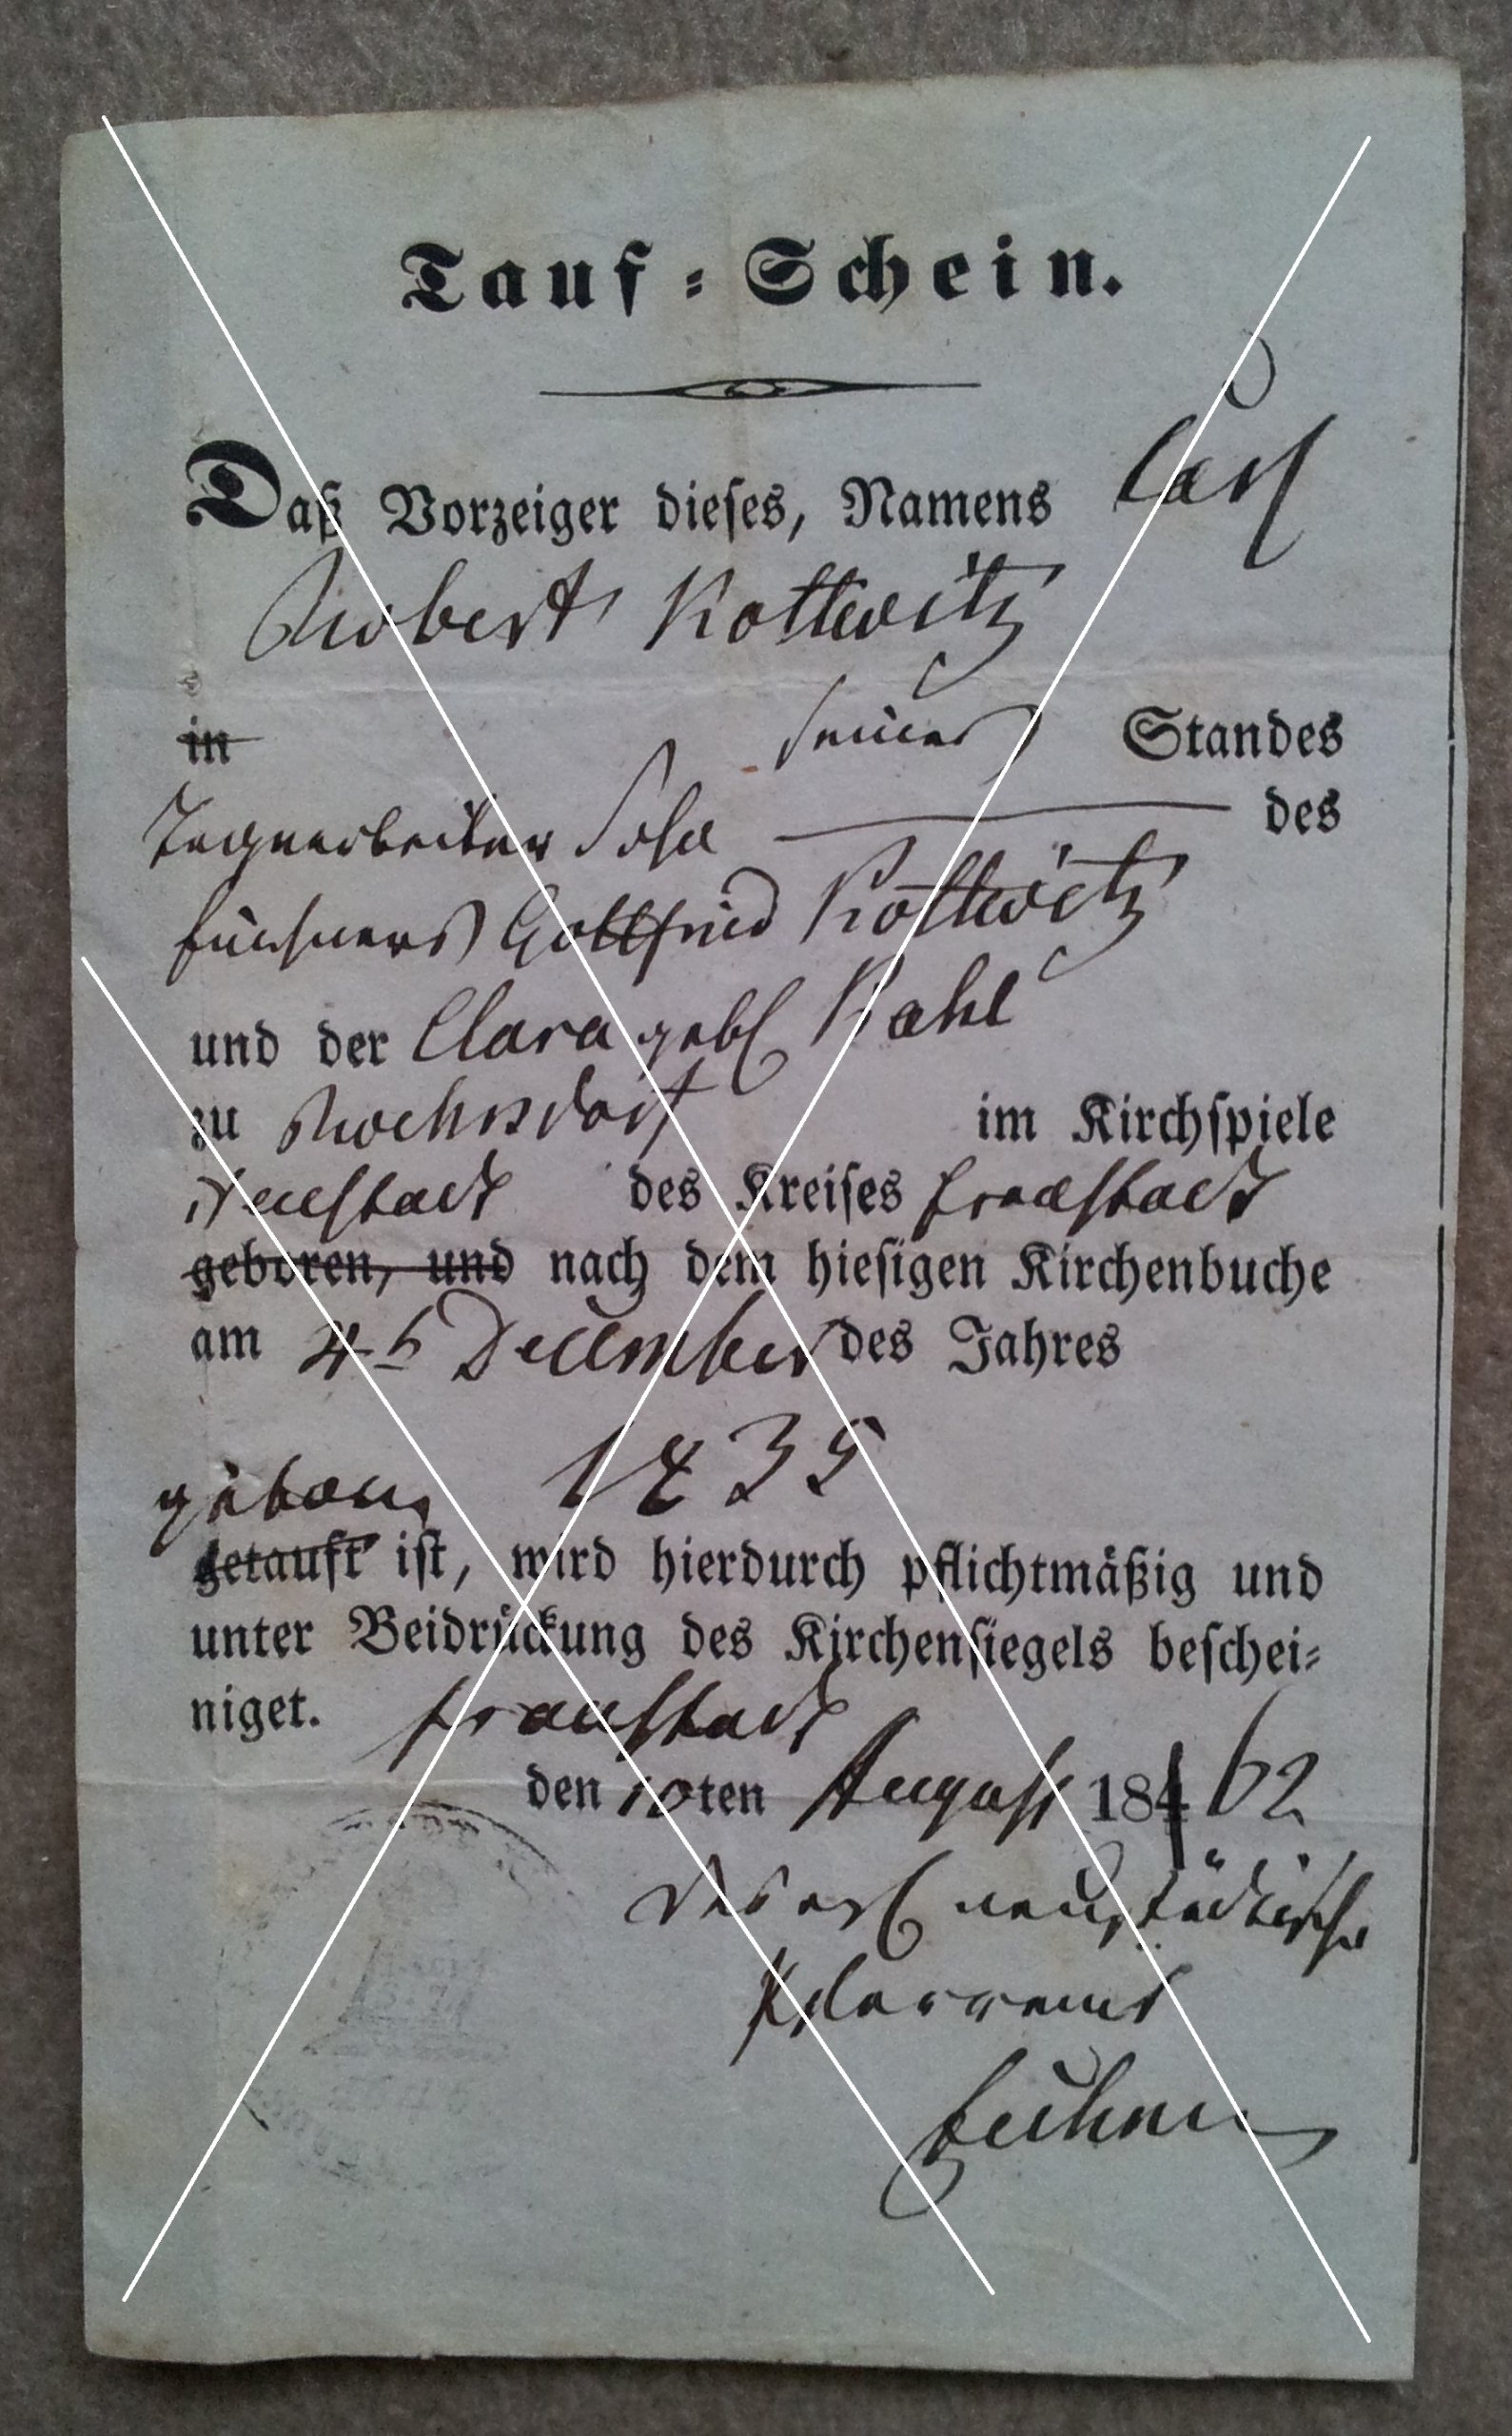 Tauf-Schein.
Daß Vorzeiger dieses, Namens Carl
Robert Kottwitz
in seines Standes
Tagearbeiter Sohn des
Gottfried Kottwitz
und der Clara geb.
zu im Kirchspiele
Neustadt des Kreises Fraustadt
geboren, und nach dem hiesigen Kirchenbuche
am 4t December des Jahres
1835
geboren
getauft ist, wird hierdurch pflichtmäßig und
unter Beidrückung des Kirchensiegels beschei-
niget. Fraustadt
den 10ten August 184 62
Das neustädtische
Pfarramt